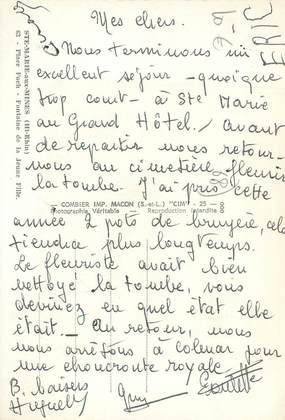 Mes chers.
Nous terminons un
excellent séjour - quoique
trop court - à Ste Marie
au Grand Hôtel. / avant
de repartir nous retour-
nous au cimetière fleurir
la tombe. J'ai pris cette
année 2 pots de bruyère, cela
tiendra plus longtemps.
Le fleuriste avait bien
nettoyé la tombe, vous
devinez en quel état elle
était. - au retour, nous
nous arrêtons à Colmar pour
une choucroute royale
B. baisers
Guy
STE-MARIE-aux-MINES (Ht-Rhin)
63 - Place Foch - Fontaine de la Jeune Fille
COMBIER IMP. MACON (S.-et-L.) "CIM"
Photographie Véritable
Reproduction interdite